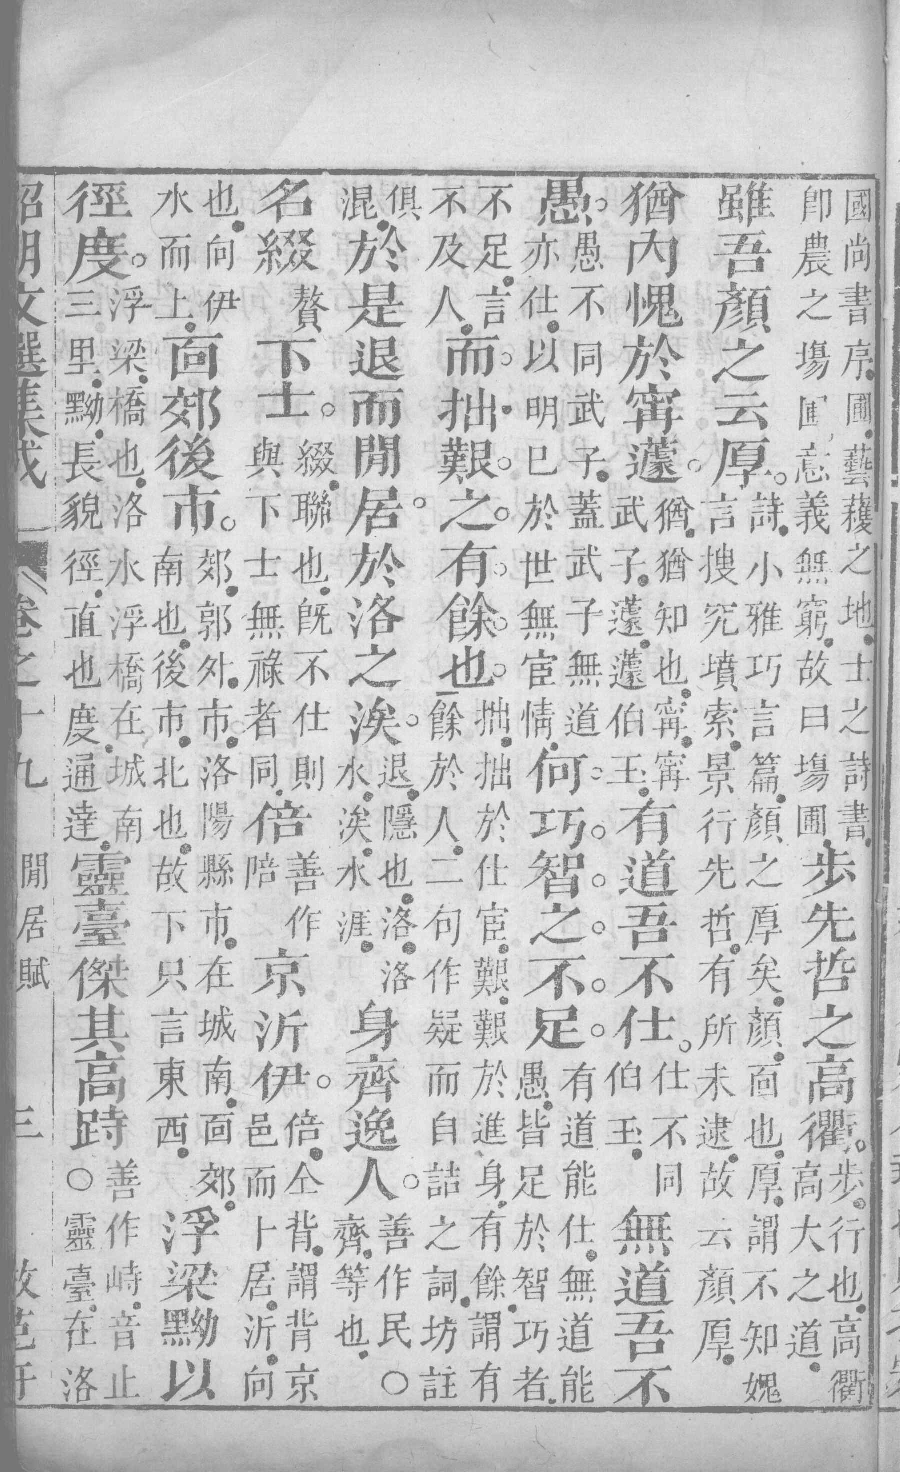 國尚書序圃藝穫之地士之詩書即農之塲圃意義無窮故曰塲圃步先哲之高衢步行也高衢高大之道
雖吾顏之云厚詩小雅巧言篇顏之厚矣顏面也厚謂不知媿言搜究墳索景行先哲有所未逮故云顏厚
猶內愧於寗蘧猶猶知也寗寗武子蘧蘧伯玉有道吾不仕仕不同伯玉無道吾不
愚愚不同武子蓋武子無道亦仕以明已於世無宦情何巧智之不足有道能仕無道能愚皆足於智巧者
不足言不及人而拙艱之有餘也拙拙於仕宦艱艱於進身有餘謂有餘於人二句作疑而自詰之詞坊註
俱混於是退而閒居於洛之涘退隱也洛洛水涘水涯身齊逸人善作民○齊等也
名綴贅下士綴聯也旣不仕則與下士無祿者同倍善作陪京泝伊倍仝背謂背京邑而卜居泝向
也向伊水而上面郊後市郊郭外市洛陽縣市在城南面郊南也後市北也故下只言東西浮梁黝以
徑度浮梁橋也洛水浮橋在城南三里黝長貌徑直也度通達靈臺傑其高跱善作峙音止○靈臺在洛
昭明文選集成 卷之十九 閒居賦 三